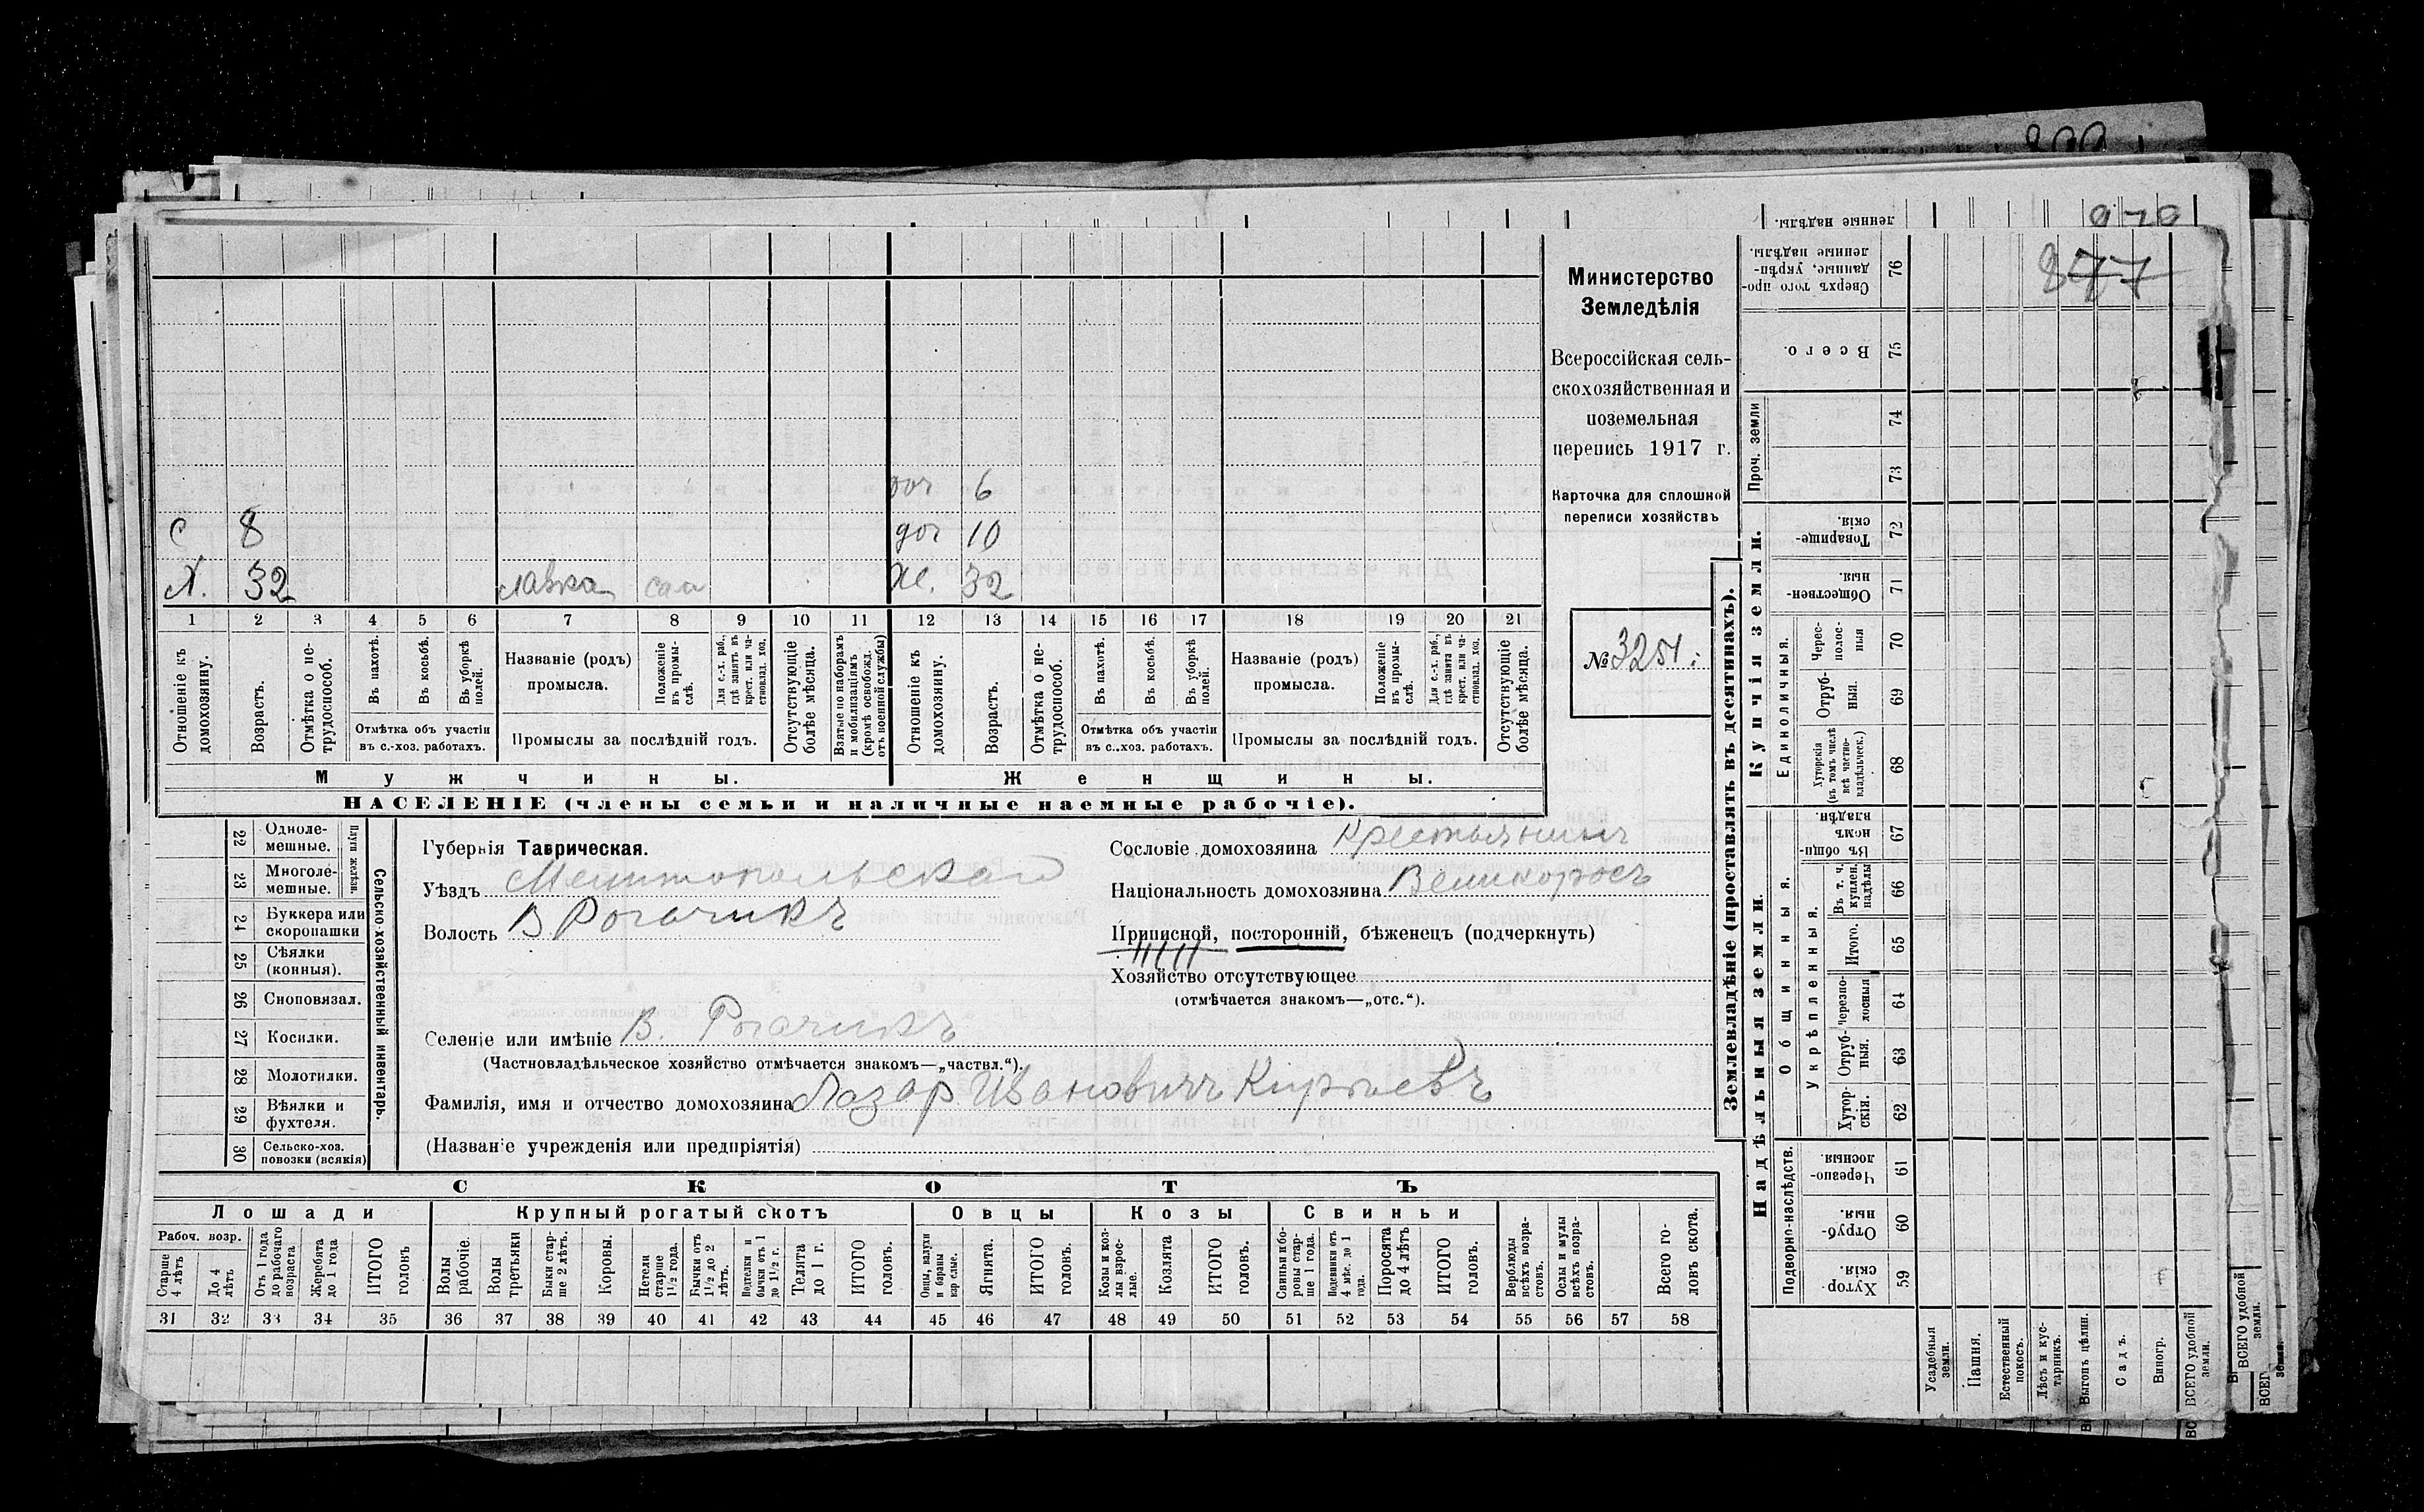 Министерство
Земледѣлія
Всероссійская сель-
скохозяйственная и
поземельная
перепись 1917 г.
Карточка для сплошной
переписи хозяйствъ
№ 3251.
877
доч 6
с 8 доч 10
Х. 32 лавка сам Ж. 32
1 2 3 4 5 6 7 8 9 10 11 12 13 14 15 16 17 18 19 20 21
Отношеніе къ домохозяину.
Возрастъ.
Отмѣтка о не-трудоспособ.
Въ пахотѣ.
Въ косьбѣ.
Въ уборкѣ полей.
Отмѣтка объ участіи
въ с.-хоз. работахъ.
Названіе (родъ)
промысла.
Положеніе въ промы-слѣ.
Для с.-х. раб., гдѣ занятъ въ крест. или ча-стновлад. хоз.
Промыслы за послѣдній годъ.
Отсутствующіе болѣе мѣсяца.
Взятые по наборамъ и мобилизаціямъ (кромѣ освобожд. отъ военной службы)
Отношеніе къ домохозяину.
Возрастъ.
Отмѣтка о не-трудоспособ.
Въ пахотѣ.
Въ косьбѣ.
Въ уборкѣ полей.
Отмѣтка объ участіи
въ с.-хоз. работахъ.
Названіе (родъ)
промысла.
Положеніе въ промы-слѣ.
Для с.-х. раб., гдѣ занята въ крест. или ча-стновлад. хоз.
Промыслы за послѣдній годъ.
Отсутствующіе болѣе мѣсяца.
Мужчины. Женщины.
НАСЕЛЕНІЕ (члены семьи и наличные наемные рабочіе).
Сельско-хозяйственный инвентарь.
Плуги желѣзн.
22 Одноле-мешные.
23 Многоле-мешные.
24 Буккера или скоропашки
25 Сѣялки (конныя).
26 Сноповязал.
27 Косилки.
28 Молотилки.
29 Вѣялки и фухтеля.
30 Сельско-хоз. повозки (всякія)
Губернія Таврическая.
Уѣздъ Мелитопольскай
Волость В Рогачикъ
Селеніе или имѣніе В. Рогачикъ
(Частновладѣльческое хозяйство отмѣчается знакомъ—„частвл.“).
Фамилія, имя и отчество домохозяина Лазар Ивановичъ Киреевъ
(Названіе учрежденія или предпріятія)
Сословіе домохозяина Крестьянинъ
Національность домохозяина Великоросъ
Приписной, посторонній, бѣженецъ (подчеркнуть)
Хозяйство отсутствующее
(отмѣчается знакомъ—„отс.“).
СКОТЪ
Лошади Крупный рогатый скотъ Овцы Козы Свиньи
Рабоч. возр.
Старше 4 лѣтъ
До 4 лѣтъ
Отъ 1 года до рабочаго возраста
Жеребята до 1 года
ИТОГО головъ
Волы рабочіе.
Волы третьяки
Быки стар-ше 2 лѣтъ.
Коровы.
Нетели старше 1½ года.
Бычки отъ 1½ до 2 лѣтъ.
Подтелки и бычки отъ 1 до 1½ г.
Телята до 1 г.
ИТОГО головъ.
Овцы, валухи и бараны взрослые.
Ягнята.
ИТОГО головъ.
Козы и коз-лы взрос-лые.
Козлята
ИТОГО головъ.
Свиньи и бо-ровы стар-ше 1 года.
Подсвинки отъ 4 мѣс. до 1 года.
Поросята до 4 лѣтъ
ИТОГО головъ.
Верблюды всѣхъ возра-стовъ.
Ослы и мулы всѣхъ возра-стовъ.
Всего го-ловъ скота.
31 32 33 34 35 36 37 38 39 40 41 42 43 44 45 46 47 48 49 50 51 52 53 54 55 56 57 58
Землевладѣніе (проставлять въ десятинахъ).
Купчія земли.
Надѣльныя земли.
Сверхъ того про-данные, укрѣп-ленные надѣлы. 76
Всего. 75
Проч. земли 74
73
Товарище-скія. 72
Обществен-ныя. 71
Единоличныя.
Черес-полос-ныя 70
Отруб-ныя. 69
Хуторскія (въ томъ числѣ всѣ частно-владѣльческ.) 68
Общинныя.
Въ общи-номъ владѣн. 67
Укрѣпленныя.
Въ т. ч. куплен. надѣлы 66
Итого. 65
Черезпо-лосныя 64
Отруб-ныя. 63
Хутор-скія. 62
Подворно-наслѣдств.
Черезпо-лосныя 61
Отруб-ныя. 60
Хутор-скія 59
Усадебныя земли.
Пашня.
Естественный покосъ.
Лѣсъ и кус-тарникъ.
Выгонъ цѣлин.
Садъ.
Виногр.
ВСЕГО удобной земли.
ВСЕГО удобной земли.
ленные надѣлы.